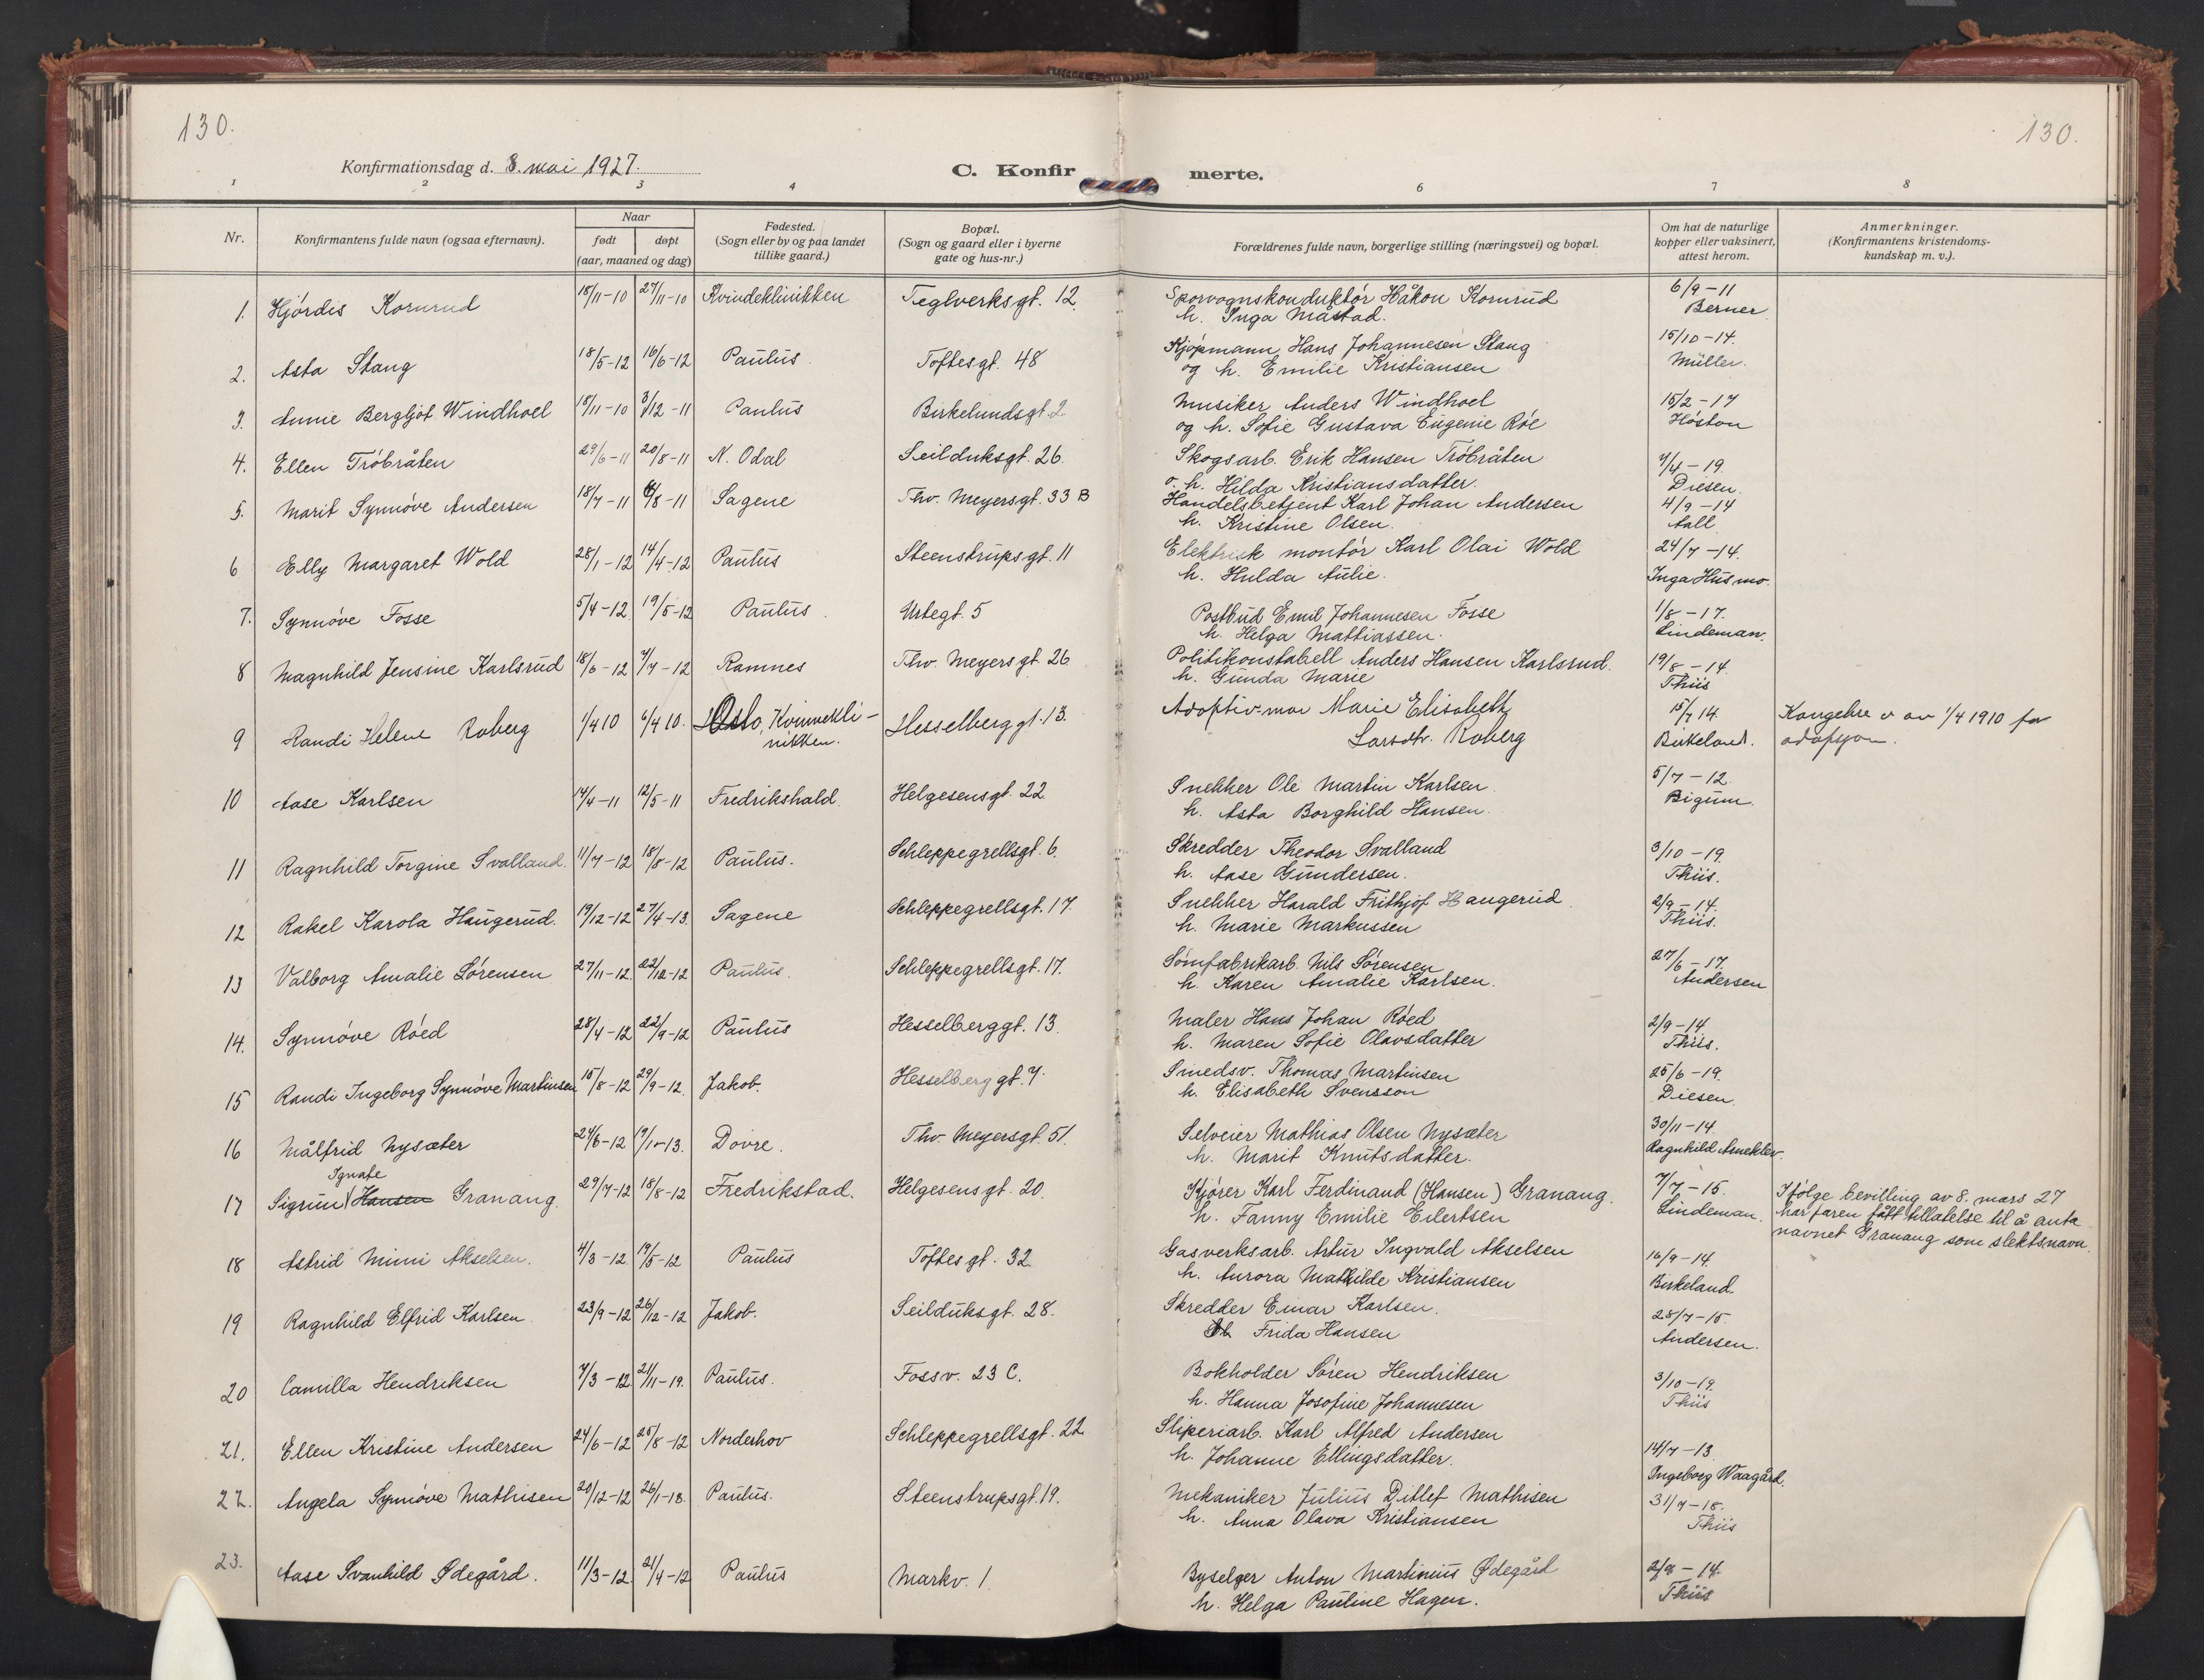 130.
130.
Konfirmationsdag d. 8. mai 1927.
C. Konfirmerte.
1 2 3 4 6 7 8
Nr.
Konfirmantens fulde navn (ogsaa efternavn).
Naar
født døpt
(aar, maaned og dag)
Fødested.
(Sogn eller by og paa landet
tillike gaard.)
Bopæl.
(Sogn og gaard eller i byerne
gate og hus-nr.)
Forældrenes fulde navn, borgerlige stilling (næringsvei) og bopæl.
Om hat de naturlige
kopper eller vaksinert,
attest herom.
Anmerkninger.
(Konfirmantens kristendoms-
kundskap m. v.).
1. Hjördis Kornrud 18/11-10 27/11-10 Kvindeklinikken Teglverksgt. 12. Sporvognskonduktör Håkon Kornrud 6/9-11
h. Inga Måstad. Berner
2. Asta Stang 18/5-12 16/6-12 Paulus Toftesgt. 48 Kjöpmann Hans Johannesen Stang 15/10-14.
og h. Emilie Kristiansen Müller.
3. Annie Bergljot Windhoel 15/11-10 3/12-11 Paulus Birkelundsgt. 2 Musiker Anders Windhoel 15/2-17
og h. Sofie Gustava Eugenie Röe Höston
4. Ellen Tröbråten 29/6-11 20/8-11 N. Odal Seilduksgt. 26. Skogsarb. Erik Hansen Tröbråten 7/4-19.
o. h. Hilda Kristiansdatter. Diesen.
5. Marit Synnöve Andersen 18/7-11 6/8-11 Sagene Thv. Meyersgt. 33 B Handelsbetjent Karl Johan Andersen 4/9-14
h. Kristine Olsen. Aall
6 Elly Margaret Wold 28/1-12 14/4-12 Paulus Steenstrupsgt. 11 Elektrisk montör Karl Olai Wold 24/7-14.
h. Hulda Aulie. Inga Husmo.
7. Synnöve Fosse 5/4-12 19/5-12 Paulus Urtegt. 5 Postbud Emil Johannesen Fosse 1/8-17.
h. Helga Mattiassen. Lindeman.
8 Magnhild Jensine Karlsrud 18/6-12 7/7-12 Ramnes Thv. Meyersgt. 26 Politikonstabell Anders Hansen Karlsrud. 19/8-14.
h. Gunda Marie Thiis
9 Randi Helene Roberg 1/4 10 6/4 10. Oslo, Kvinnekli- Hesselberggt. 13. Adoptiv-mor Marie Elisabeth 15/7 14. Kongebrev av 1/4 1910 for
nikken. Larsdtr. Roberg Birkeland. adopsjon.
10 Aase Karlsen 14/4-11 12/5-11 Fredrikshald Helgesensgt. 22 Snekker Ole Martin Karlsen 5/7-12.
h. Asta Borghild Hansen. Bigum.
11 Ragnhild Torgine Svalland. 11/7-12 18/8-12 Paulus. Schleppegrellsgt. 6. Skredder Theodor Svalland 3/10-19.
h. Aase Gundersen. Thiis.
12 Rakel Karola Haugerud. 19/12-12 27/4-13. Sagene Schleppegrellsgt. 17. Snekker Harald Frithjof Haugerud. 2/9-14.
h. Marie Markussen Thiis.
13 Valborg Amalie Sörensen 27/11-12. 22/12-12 Paulus. Schleppegrellsgt. 17. Sömfabrikarb. Nils Sörensen 27/6-17.
h. Karen Amalie Karlsen. Andersen
14. Synnöve Röed 28/4-12 22/9-12 Paulus Hesselberggt. 13. Maler Hans Johan Röed 2/9-14.
h. Maren Sofie Olavsdatter Thiis.
15 Randi Ingeborg Synnöve Martinsen 15/8-12 29/9-12. Jakob. Hesselberggt. 7. Smedsv. Thomas Martinsen 25/6-19.
h. Elisabeth Svensson Diesen.
16 Målfrid Nysæter 24/6-12 Dovre. Thv. Meyersgt. 51. Selveier Mathias Olsen Nysæter 30/11-14.
h. Marit Knutsdatter. Ragnhild
Ignate
17 Sigrun Hansen Granang. 29/7-12 18/8-12 Fredrikstad. Helgesensgt. 20. Kjører Karl Ferdinand (Hansen) Granang. 7/7-15. Ifölge bevilling av 8. mars 27
h. Fanny Emilie Eilertsen Lindeman. har faren fått tillatelse til å anta
navnet Granang som slektsnavn.
18 Astrid Mimi Akselsen. 4/3-12 19/5-12 Paulus Toftesgt. 32 Gasverksarb. Artur Ingvald Akselsen 16/9-14.
h. Aurora Mathilde Kristiansen Birkeland.
19 Ragnhild Elfrid Karlsen. 23/9-12 26/12-12 Jakob. Seilduksgt. 28. Skredder Einar Karlsen. 28/7-15.
h Frida Hansen Andersen.
20 Camilla Hendriksen 7/3-12 21/11-19. Paulus. Fossv. 23 C. Bokholder Sören Hendriksen 3/10-19.
h. Hanna Josofine Johannesen Thiis
21. Ellen Kristine Andersen 24/6-12 25/8-12 Norderhov Schleppegrellsgt. 22 Sliperiarb. Karl Alfred Andersen 14/7-13
h. Johanne Ellingsdatter. Ingeborg Waagård.
22. Angela Synnöve Mathisen 20/12-12 26/1-13. Paulus. Steenstrupsgt. 19. Mekaniker Julius Ditlef Mathisen 31/7-18.
h. Anna Olava Kristiansen Thiis
23. Aase Svanhild Ødegård. 11/3-12. 21/4-12 Paulus Markv. 1. Byselger Anton Martinius Ødegård 2/9-14.
h. Helga Pauline Hagen. Thiis